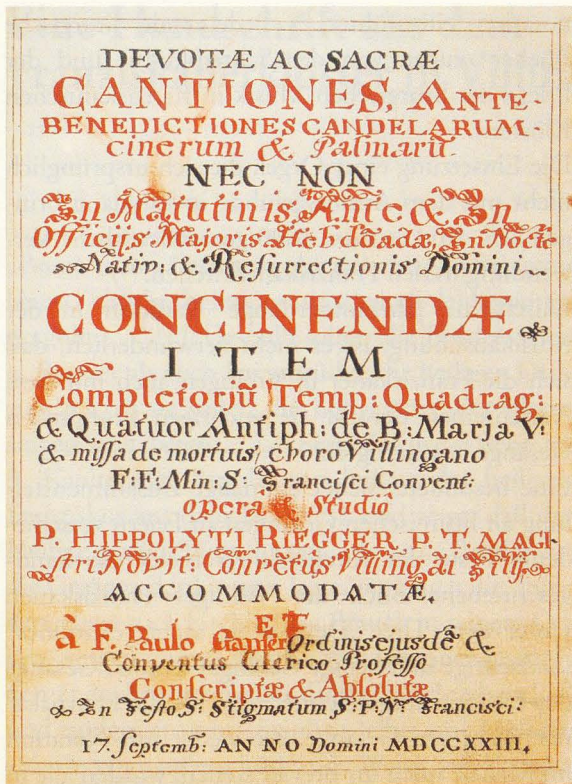 DEVOTÆ AC SACRÆ
CANTIONES, ANTE-
BENEDICTIONES CANDELARUM-
cinerum & Palmarū
NEC NON
In Matutinis, Ante & In
Officijs Majoris Hebdōadæ, In Nocte
Nativ: & Resurrectjonis Domini
CONCINENDÆ.
ITEM
Completorjū Temp: Quadrag:
& Quatuor Antiph: de B: Marja V:
& missa de mortuis choro Villingano
F: F: Min: S: Francisci Convent:
operâ & Studiô
P. HIPPOLYTI RIEGGER P. T. MAGI-
stri Novit: Convētûs Villing
ACCOMMODATÆ.
ET
à F. Paulo Ordinis ejusdē &
Conventus Clerico Professo
Conscriptæ & Absolutæ
In Festo S: Stigmatum S: P: N: Francisci:
17. Septemb: ANNO Domini MDCCXXIII.